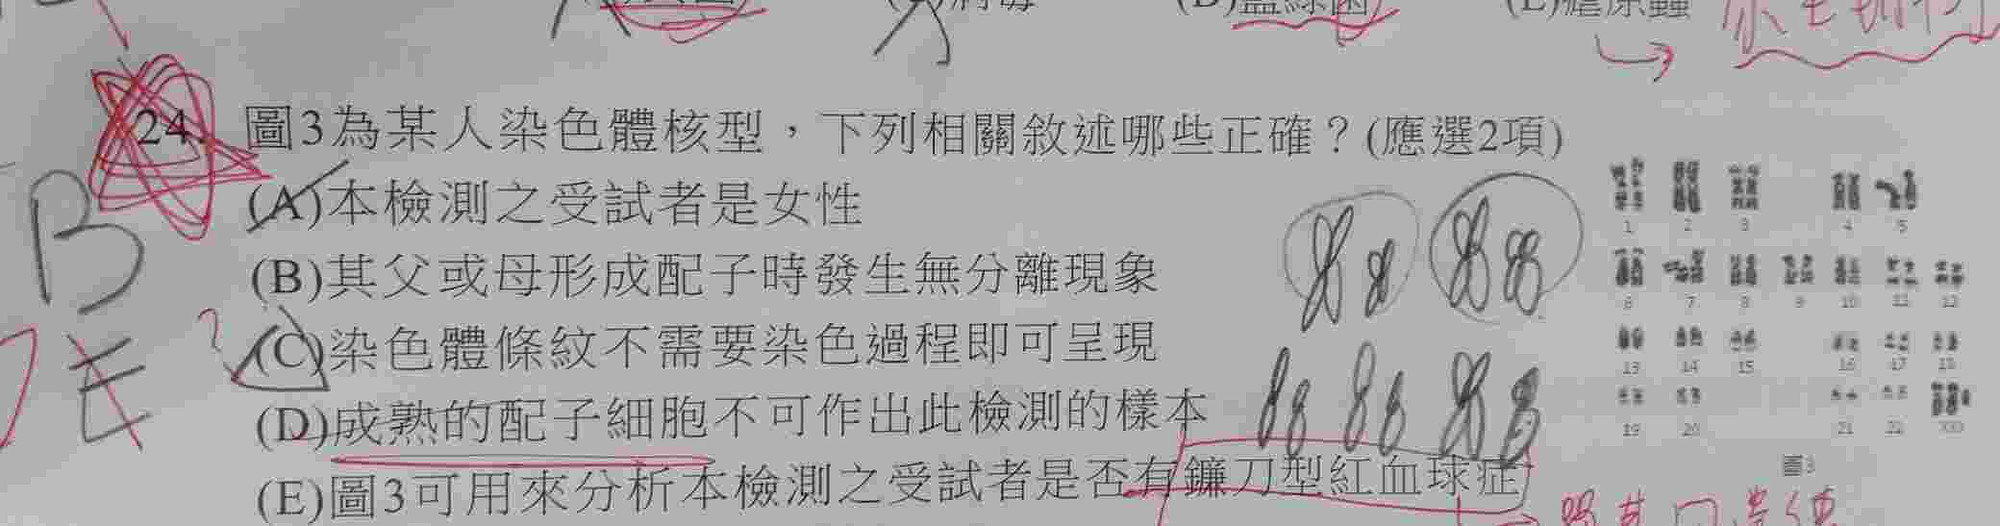 24. 圖3為某人染色體核型，下列相關敘述哪些正確？(應選2項)
(A)本檢測之受試者是女性
(B)其父或母形成配子時發生無分離現象
(C)染色體條紋不需要染色過程即可呈現
(D)成熟的配子細胞不可作出此檢測的樣本
(E)圖3可用來分析本檢測之受試者是否有鐮刀型紅血球症
B
E
?
1 2 3 4 5
6 7 8 9 10 11 12
13 14 15 16 17 18
19 20 21 22
圖3